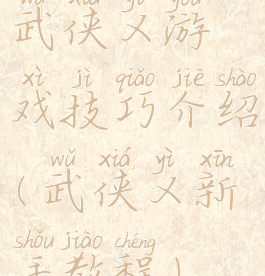 wǔ xiá yì yóu
武侠乂游
xì jì qiǎo jiè shào
戏技巧介绍
wǔ xiá yì xīn
(武侠乂新
shǒu jiào chéng
手教程)